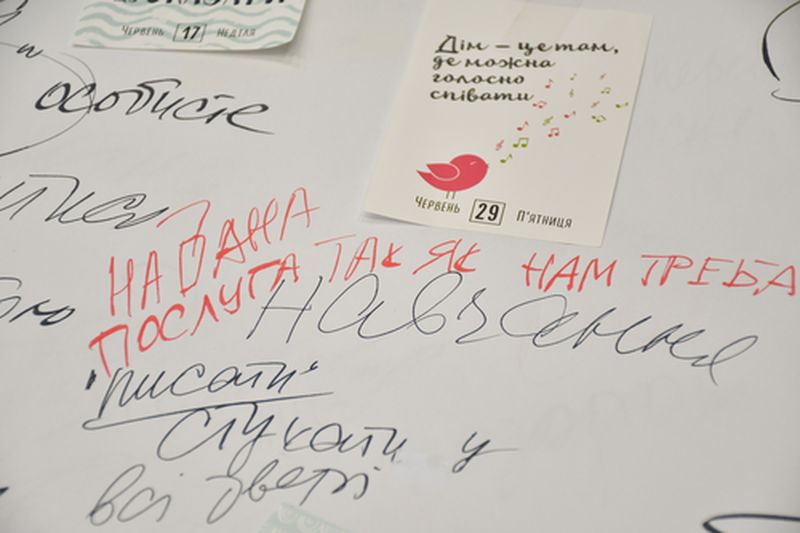 ЧЕРВЕНЬ 17 НЕДІЛЯ
Дім – це там,
де можна
голосно
співати
ЧЕРВЕНЬ 29 П'ЯТНИЦЯ
особисте
НАДАНА
ПОСЛУГА ТАК ЯК НАМ ТРЕБА
Навчання
"писати"
стукати у
всі двері